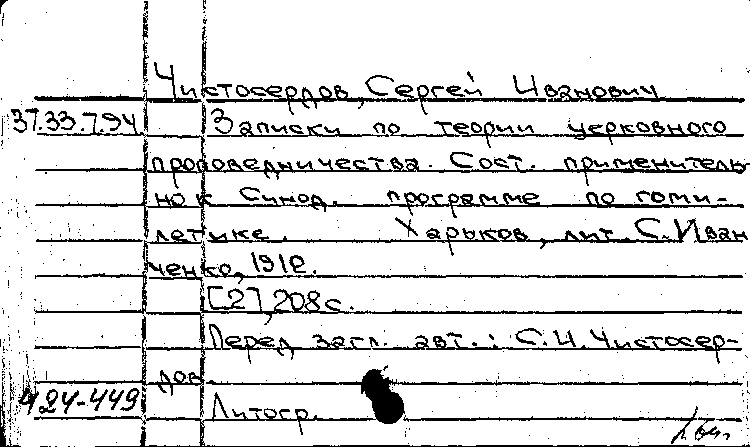 Чистосердов, Сергей Иванович
37.33.7.94 Записки по теории церковного
проповедничества. Сост. применитель-
но к Синод. программе по гоми-
летике. Харьков, лит. С. Иван
ченко, 1912.
[2], 208 с.
Перед загл. авт.: С.И. Чистосер-
дов.
424-449 Литогр.